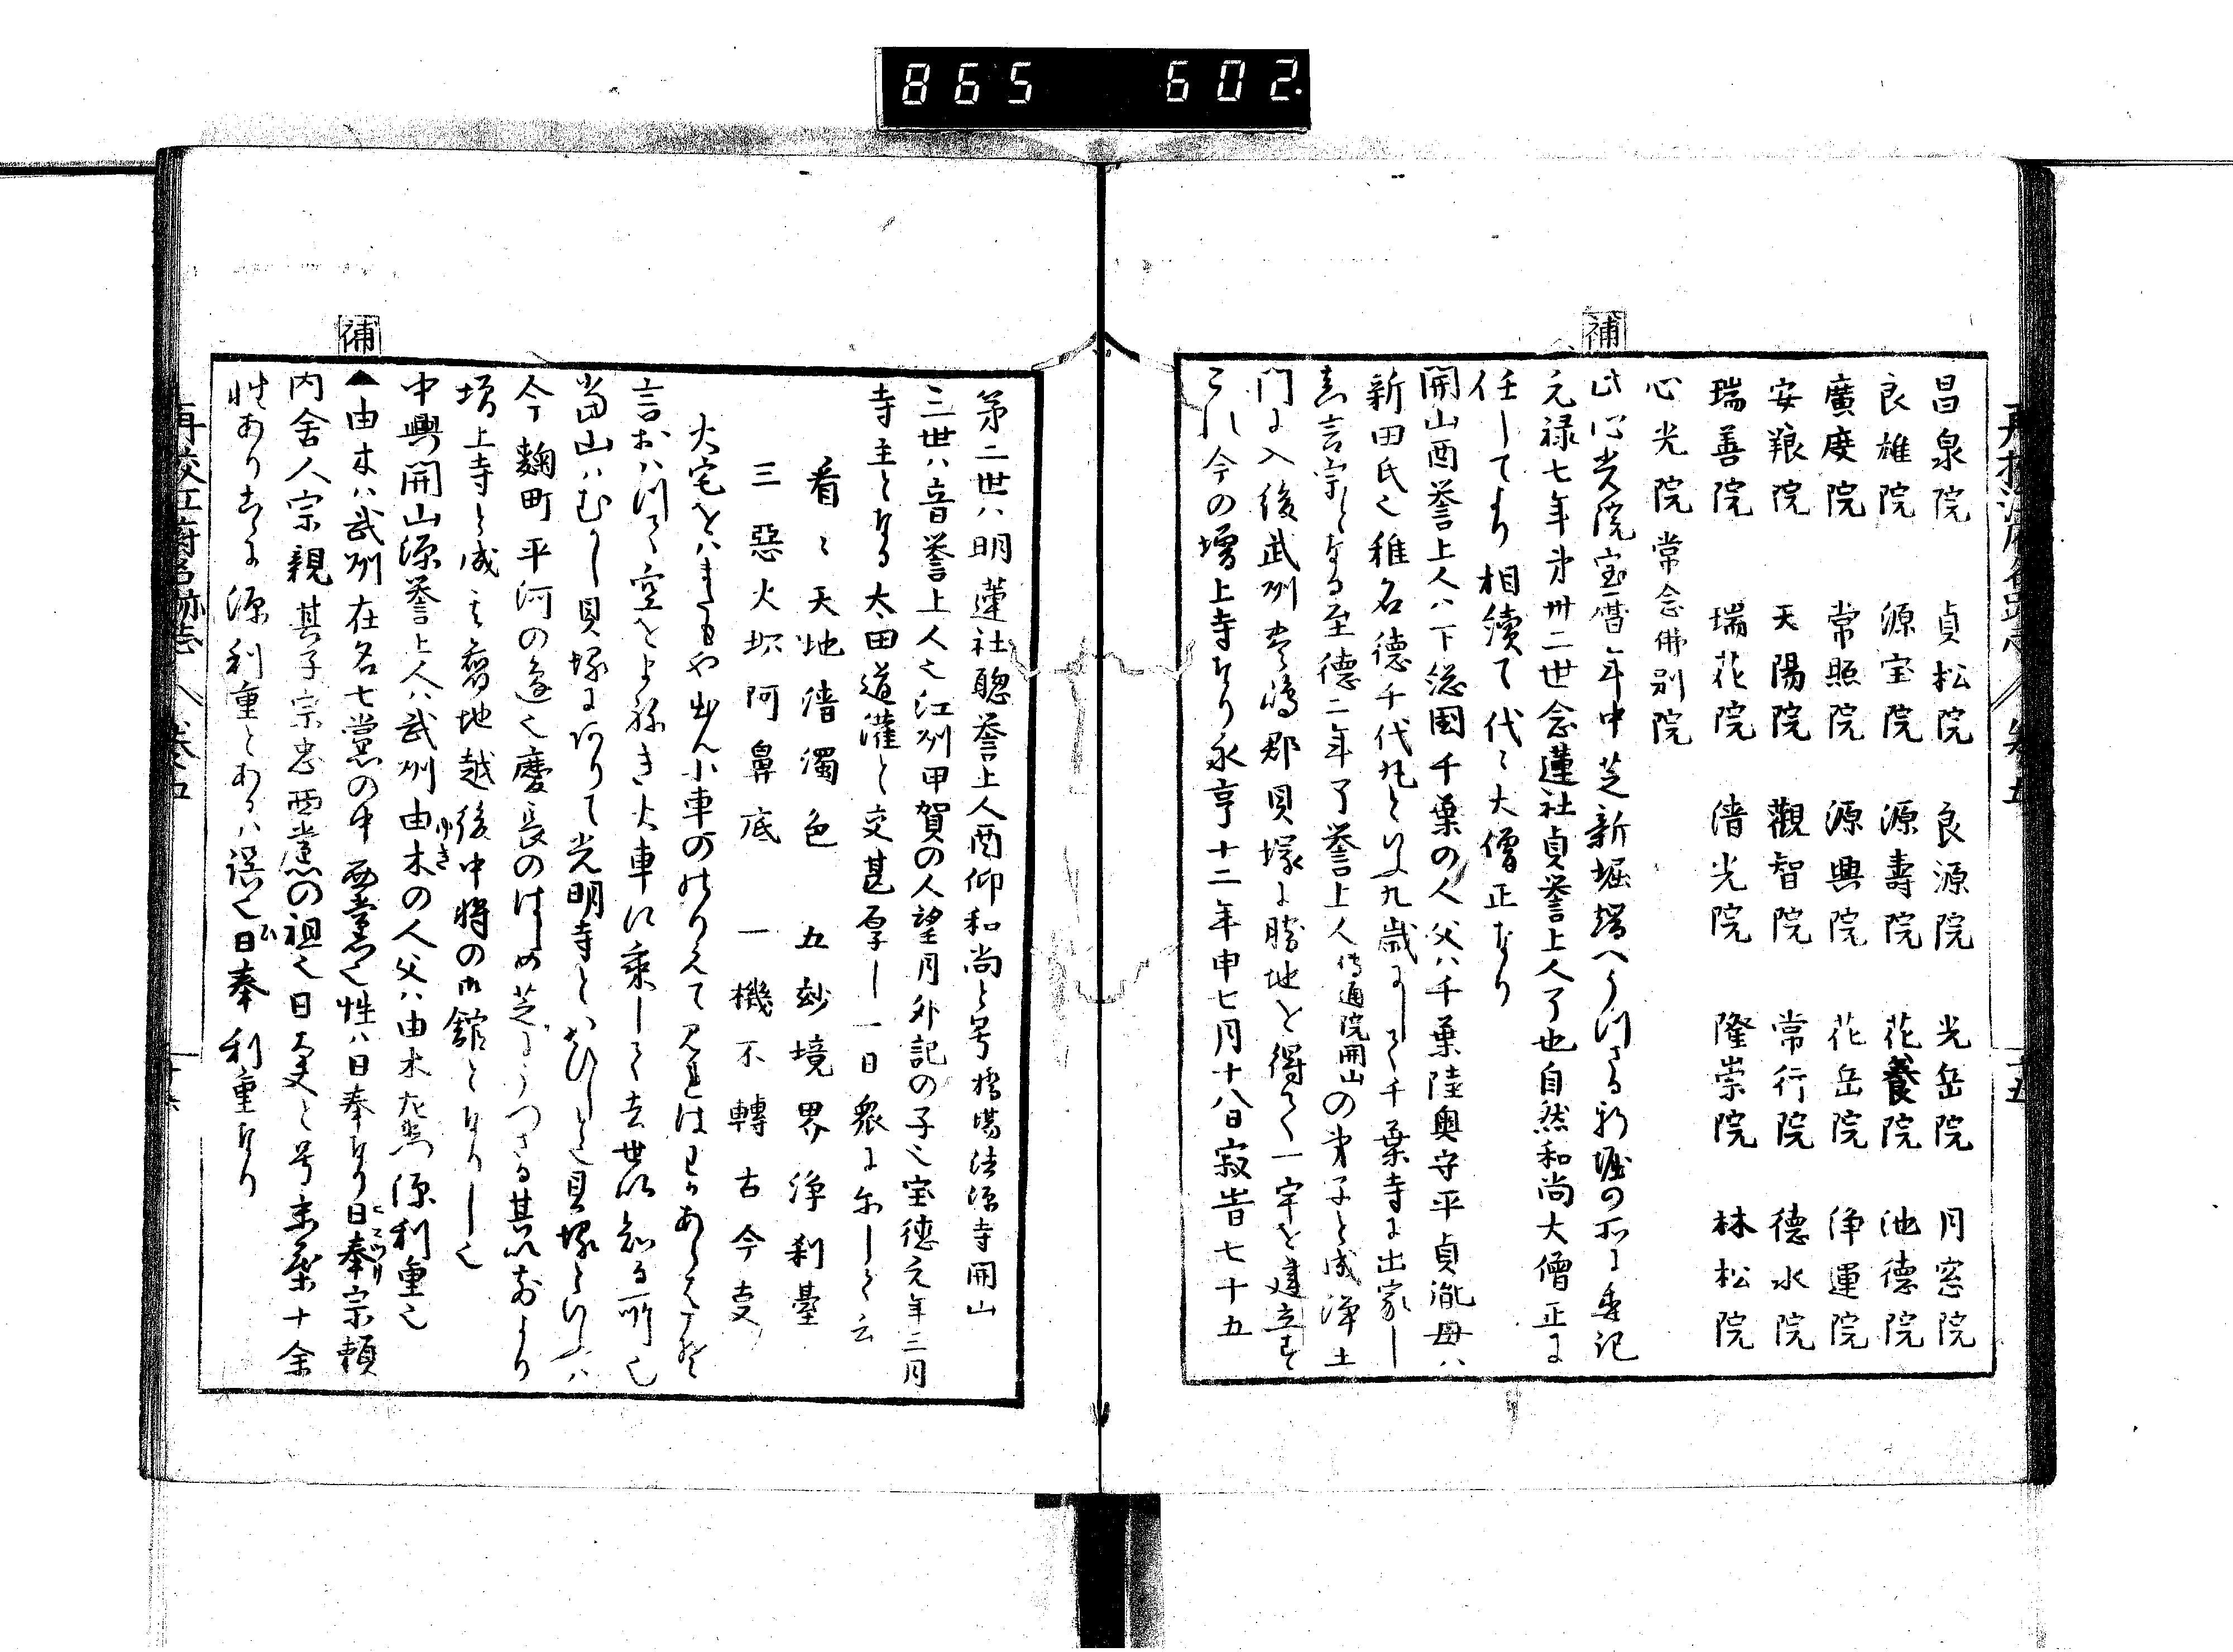 865 602.
補
昌泉院 貞松院 良源院 光岳院 月窓院
良雄院 源宝院 源壽院 花養院 池德院
廣度院 常照院 源興院 花岳院 浄運院
安養院 天陽院 觀智院 常行院 德水院
瑞善院 瑞花院 清光院 隆崇院 林松院
心光院 常念佛別院
此心光院宝暦年中芝新堀端へうつさる新堀の所に委記
元禄七年第卅二世念蓮社貞誉上人了也自然和尚大僧正に
任してより相續て代々大僧正なり
開山酉誉上人ハ下総国千葉の人父ハ千葉陸奥守平貞胤母ハ
新田氏也稚名德千代丸といふ九歳にして千葉寺に出家し
真言宗となる至德二年了誉上人傳通院開山の弟子と成浄土
門に入後武州豊嶋郡貝塚に勝地を得て一宇を建立す
これ今の増上寺なり永亨十二年申七月十八日寂昔七十五
補
第二世ハ明蓮社聰誉上人酉仰和尚と号橋場法源寺開山
三世ハ音誉上人也江州甲賀の人望月外記の子也宝德元年二月
寺主となる太田道灌と交甚厚し一日衆に示して云
看々天地清濁色 五妙境界浄利臺
三惡火坑阿鼻底 一機不轉古今支
火宅をハまたもや出ん小車の のりえて見れはわかあらはこそ
言おハつて空をよねき火車に乘して去世以知る所也
當山ハむかし貝塚にありて光明寺とかひしと也貝塚といふハ
今麴町平河の邊也慶長のはしめ芝にうつさる其以前より
増上寺と成し也舊地越後中将の御館となりし也
中興開山源誉上人ハ武州由木の人父ハ由木左衛門源利重也
▲由木ハ武州在名七黨の中西黨也性ハ日奉なり日奉宗頼
内舍人宗親其子宗忠西黨の祖也日太夫と号末葉十余
性ありこゝに源利重とあるハ誤也日奉利重なり
再校江府名跡志 巻五